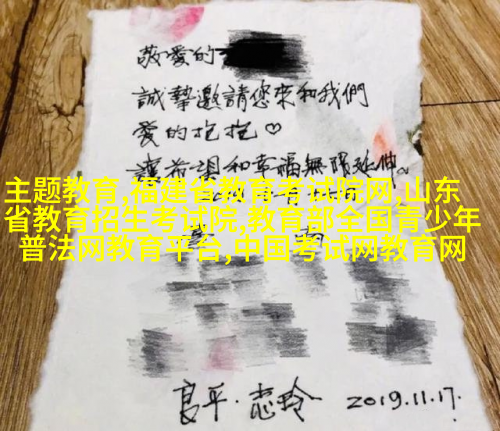 敬愛的
誠摯邀請您來和我們
愛的抱抱♡
讓希望和幸福無限延伸。
主题教育,福建省教育考试院网,山东
省教育招生考试院,教育部全国青少年
普法网教育平台,中国考试网教育网
良平·志玲
2019.11.17.